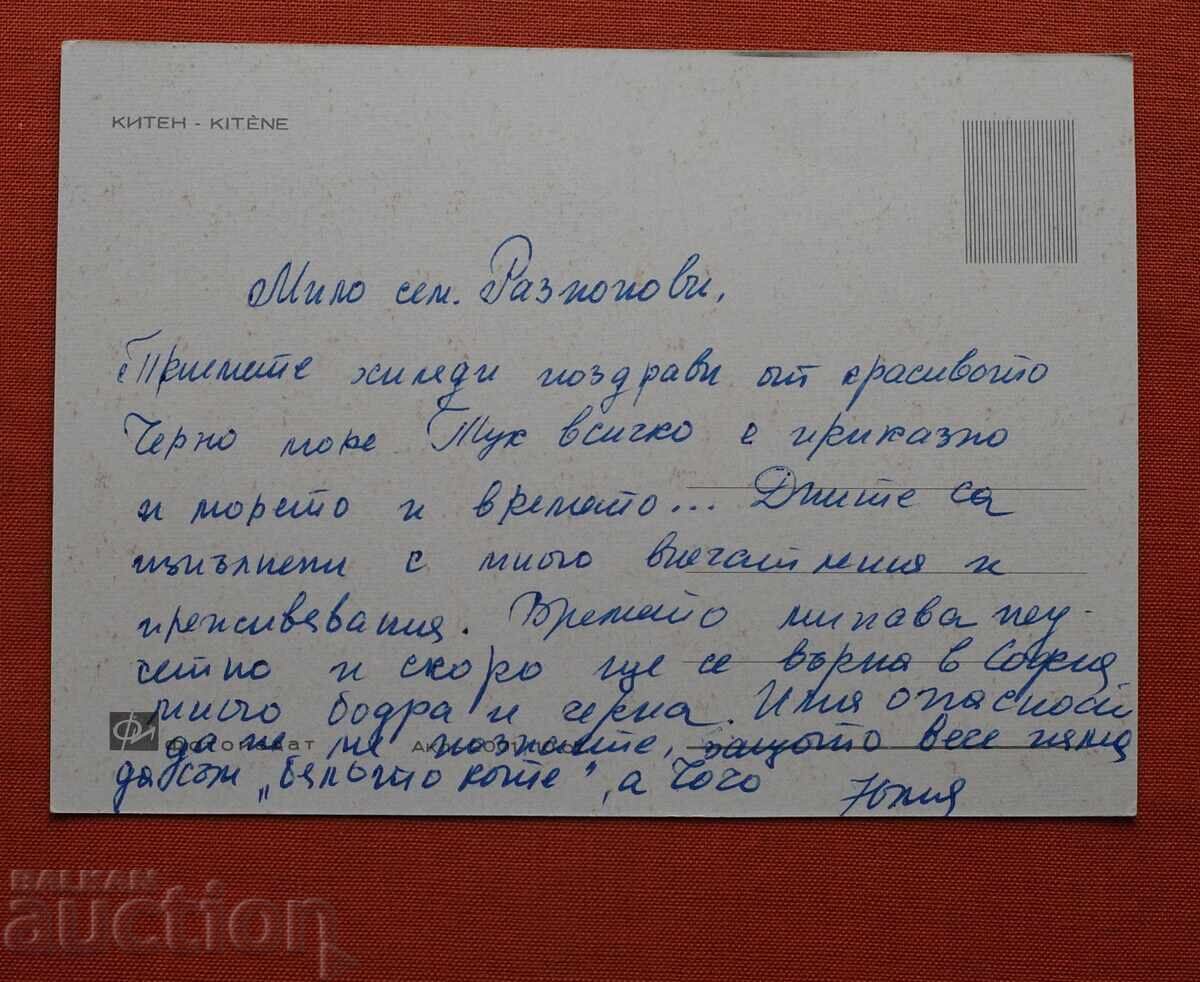 КИТЕН - KITÈNE
Мило сем. Разпопови,
Приемете хиляди поздрави от красивото
Черно море Тук всичко е приказно
и морето и времето... Дните са
изпълнени с много впечатления и
преживявания. Времето минава неу-
сетно и скоро ще се върна в София
много бодра и черна. Има опасност
да не ме познаете, защото вече няма
да съм „бялото коте“, а Чочо
Юлия
ФИ фотоиздат
BALKAN
auction